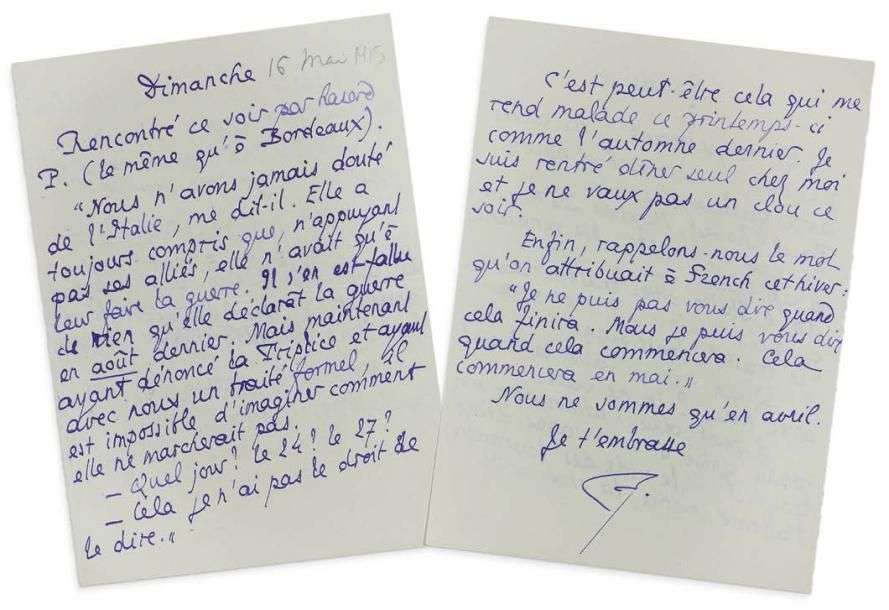 Dimanche 16 Mai 1915
Rencontré ce soir par hasard
P. (le même qu'à Bordeaux).
"Nous n'avons jamais douté
de l'Italie, me dit-il. Elle a
toujours compris que, n'appuyant
pas ses alliés, elle n'avait qu'à
leur faire la guerre. Il s'en est fallu
de rien qu'elle déclarât la guerre
en août dernier. Mais maintenant
ayant dénoncé la Triplice et ayant
avec nous un traité formel, il
est impossible d'imaginer comment
elle ne marcherait pas.
— Quel jour? le 24? le 27?
— Cela je n'ai pas le droit de
le dire."
C'est peut-être cela qui me
rend malade ce printemps-ci
comme l'automne dernier. Je
suis rentré dîner seul chez moi
et je ne vaux pas un clou ce
soir.
Enfin, rappelons-nous le mot
qu'on attribuait à French cet hiver:
"Je ne puis pas vous dire quand
cela finira. Mais je puis vous dire
quand cela commencera. Cela
commencera en mai."
Nous ne sommes qu'en avril.
Je t'embrasse